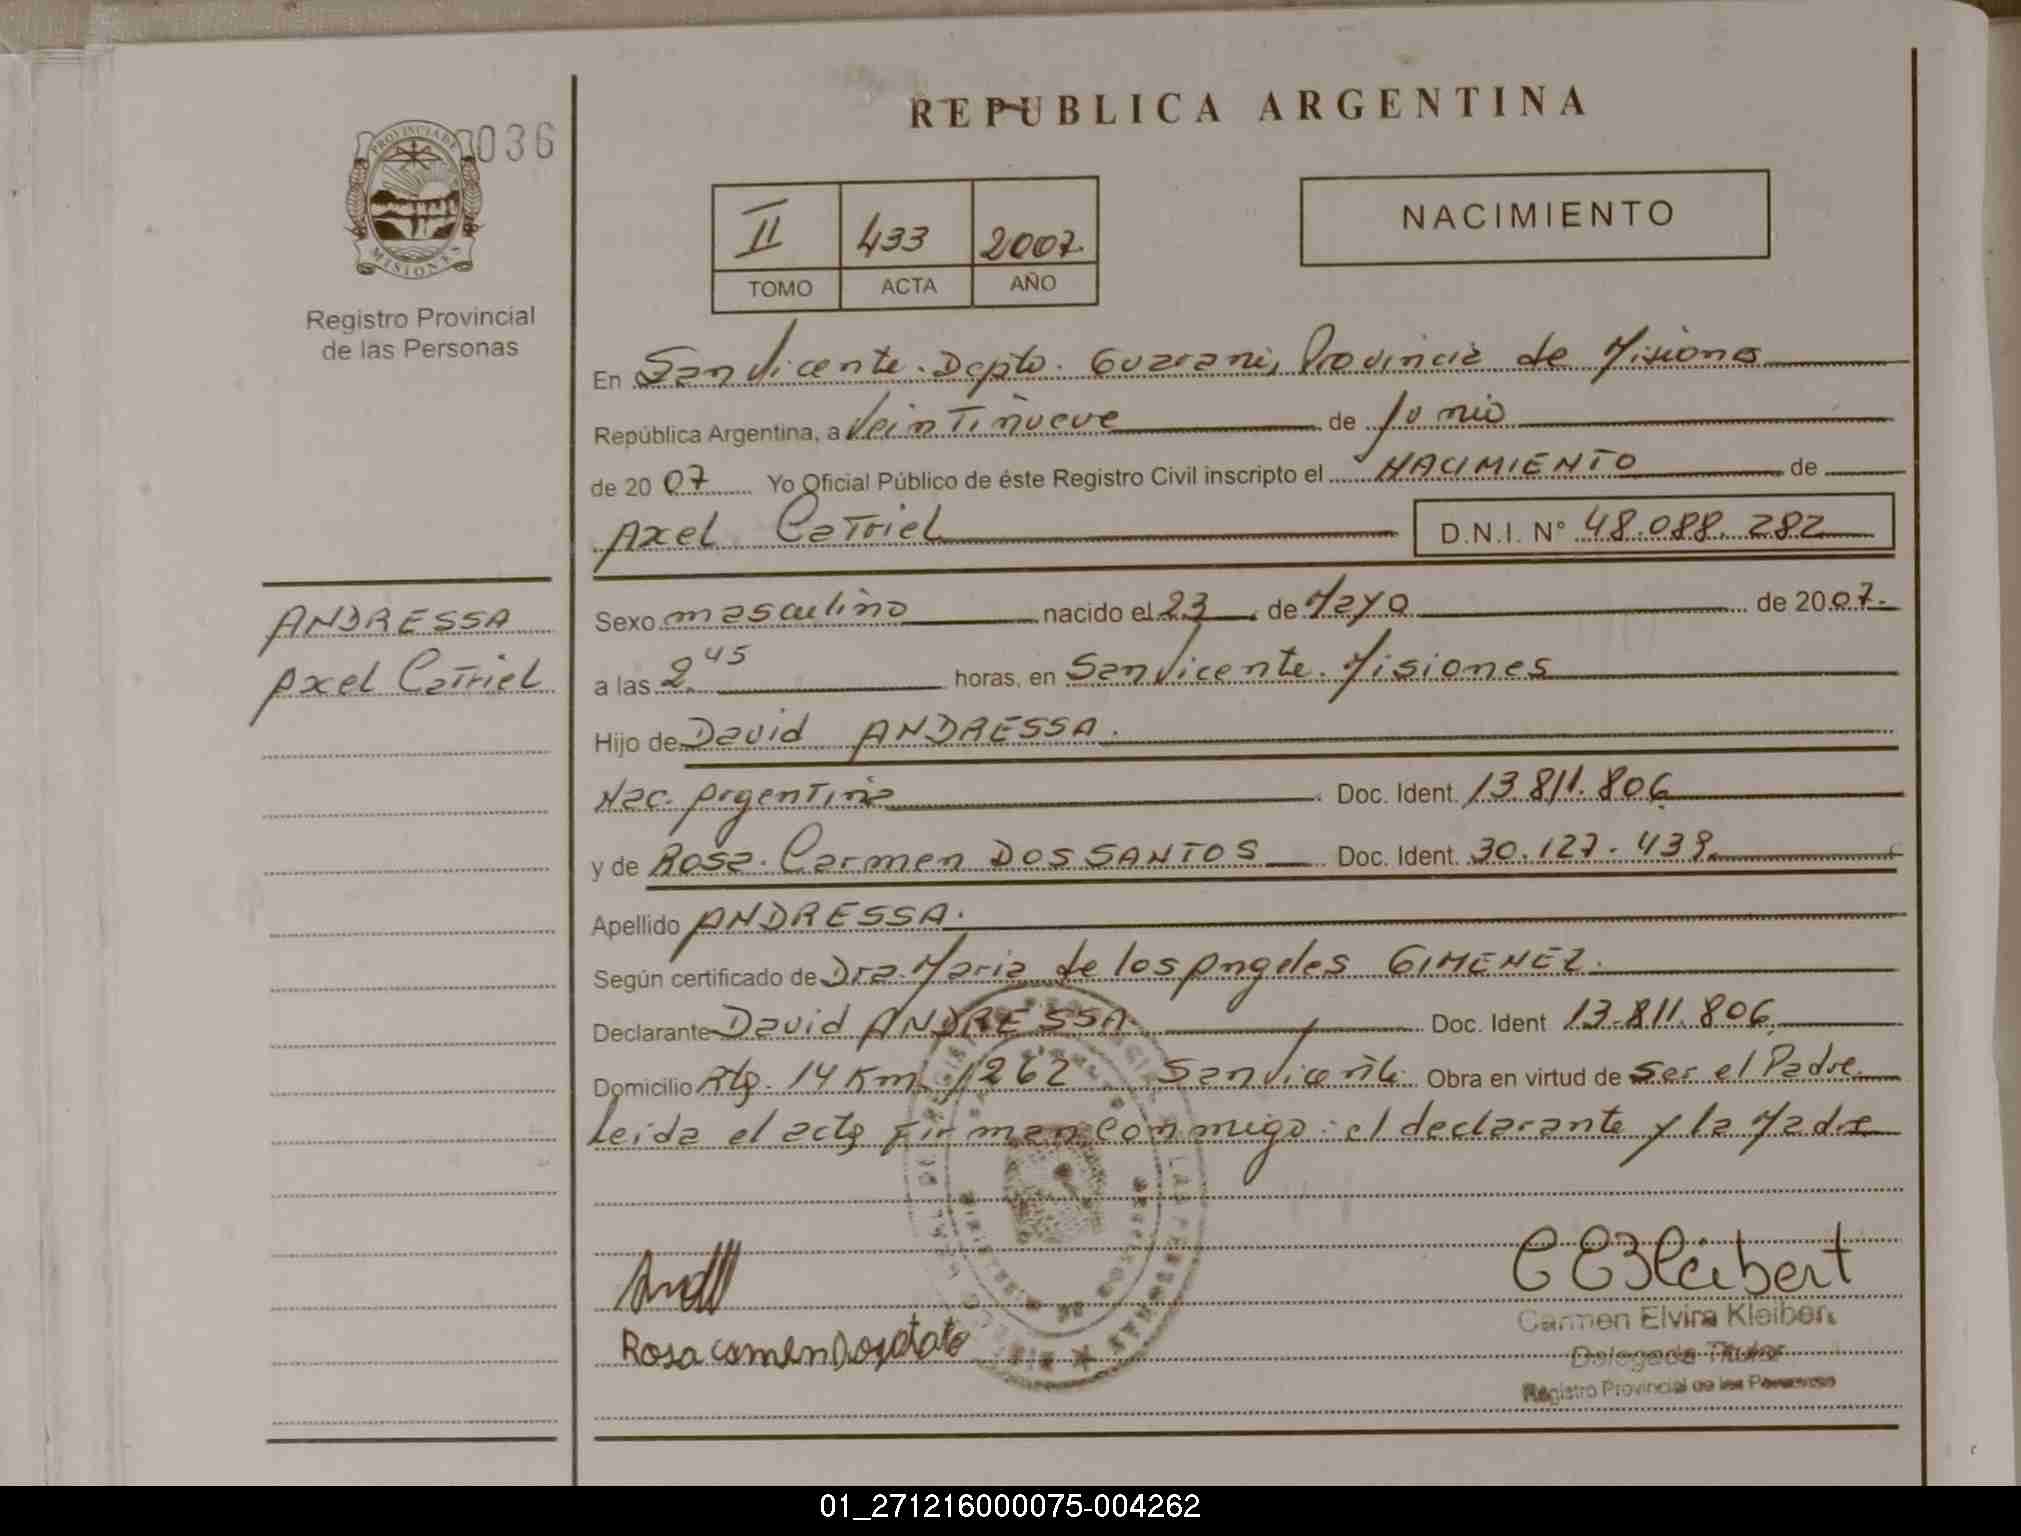 REPUBLICA ARGENTINA
036
PROVINCIA DE
MISIONES
Registro Provincial
de las Personas
II 433 2007
TOMO ACTA AÑO
NACIMIENTO
En San Vicente. Depto. Guaraní, Provincia de Misiones
República Argentina, a Veintinueve de Junio
de 2007 Yo Oficial Público de éste Registro Civil inscripto el NACIMIENTO de
Axel Catriel D.N.I. N° 48.088.282
ANDRESSA
Axel Catriel
Sexo masculino nacido el 23 de Mayo de 2007.
a las 2 45 horas, en San Vicente. Misiones
Hijo de David ANDRESSA.
Nac. Argentina Doc. Ident. 13.811.806
y de Rosa. Carmen DOS SANTOS Doc. Ident. 30.127.439
Apellido ANDRESSA.
Según certificado de Dra. Maria de los Angeles GIMENEZ.
Declarante David ANDRESSA Doc. Ident 13.811.806
Domicilio Rta. 14 Km 1262 San Vicente. Obra en virtud de Ser el Padre.
Leida el acta firman conmigo: el declarante y la Madre
Rosa
Carmen Elvira Kleibert
Delegada Titular
Registro Provincial de las Personas
01_271216000075-004262